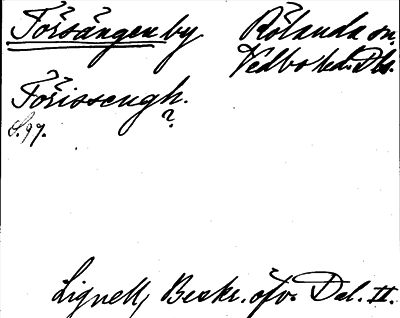 Försängen by Rölanda sn.
Vedbo hd. Dls.
Förissengh.
?
S. 97.
Lignell, Beskr. öfv. Dal. II.